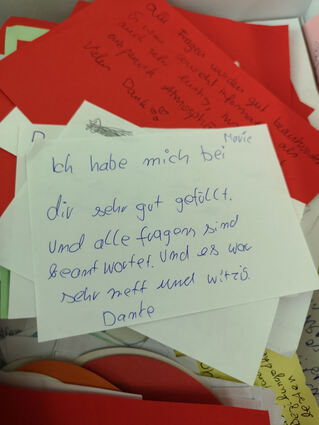 alle Fragen wurden gut beantwortet
auch sehr lustig
Vielen
Dank
Movie
Ich habe mich bei
dir sehr gut gefüllt.
und alle fragen sind
beantwortet. Und es war
sehr nett und witzig.
Danke